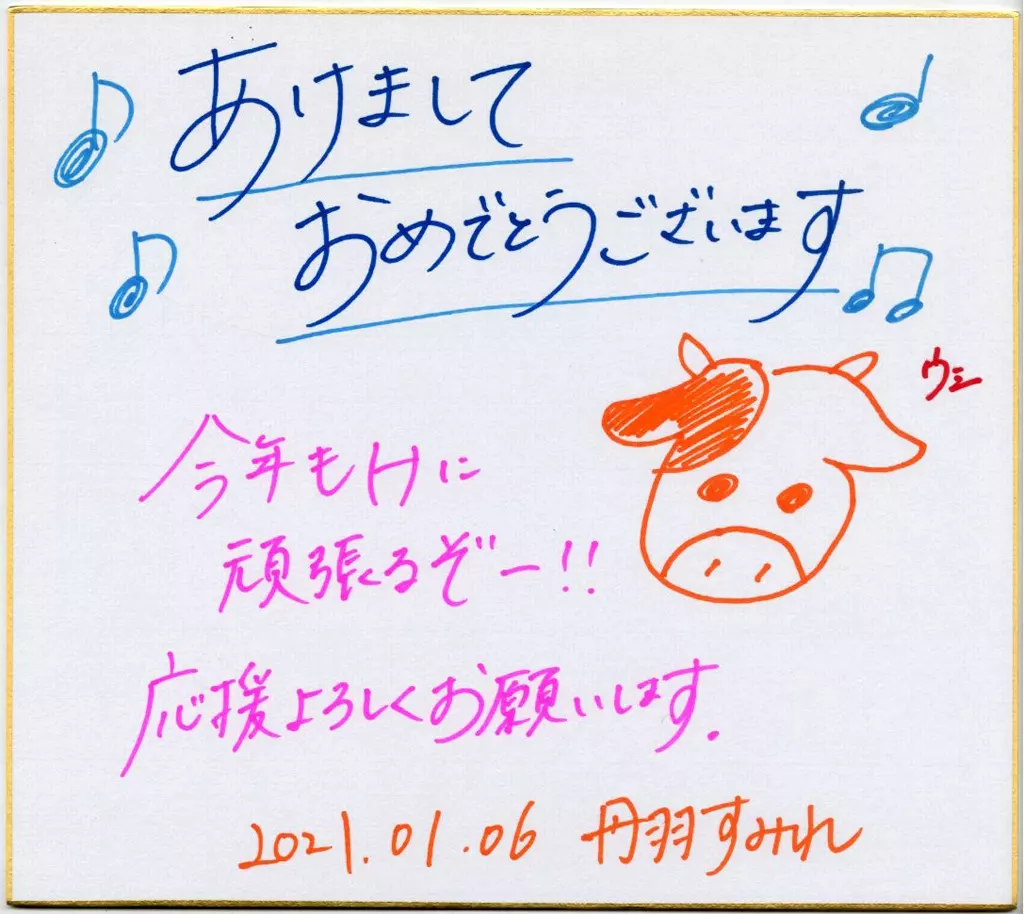 あけまして
おめでとうございます
ウシ
今年もけに
頑張るぞー!!
応援よろしくお願いします.
2021.01.06 丹羽すみれ